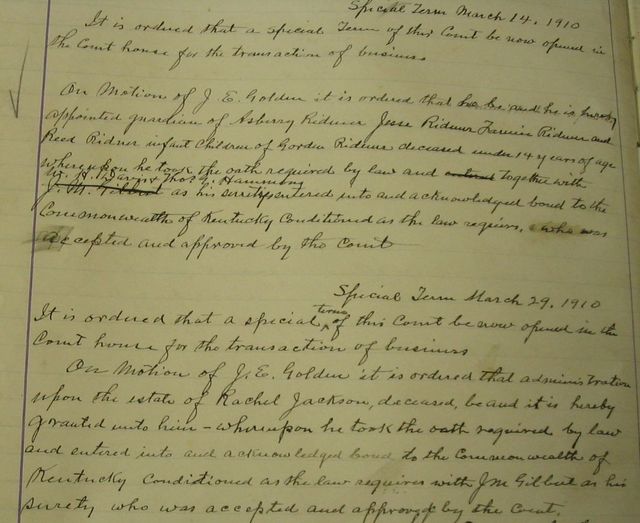 Special Term March 14, 1910
It is ordered that a special Term of this Court be now opened in
the Court house for the transaction of business
On Motion of J. E. Golden it is ordered that he be and he is hereby
appointed guardian of Asberry Ridner Jesse Ridner Fannie Ridner and
Reed Ridner infant Children of Gorden Ridner deceased under 14 years of age
whereupon he took the oath required by law and together with
W. H. Thos. G. Hammons
J. M. Gilbert as his surety entered into and acknowledged bond to the
Commonwealth of Kentucky Conditined as the law requires, who was
accepted and approved by the Court
Special Term March 29, 1910
It is ordered that a special term of this Court be now opened in the
Court house for the transaction of business
On Motion of J. E. Golden it is ordered that administration
upon the estate of Rachel Jackson, deceased, be and it is hereby
granted unto him - whereupon he took the oath required by law
and entered into and acknowledged bond to the Commonwealth of
Kentucky Conditioned as the law requires with J M Gilbert as his
surety who was accepted and approved by the Court.